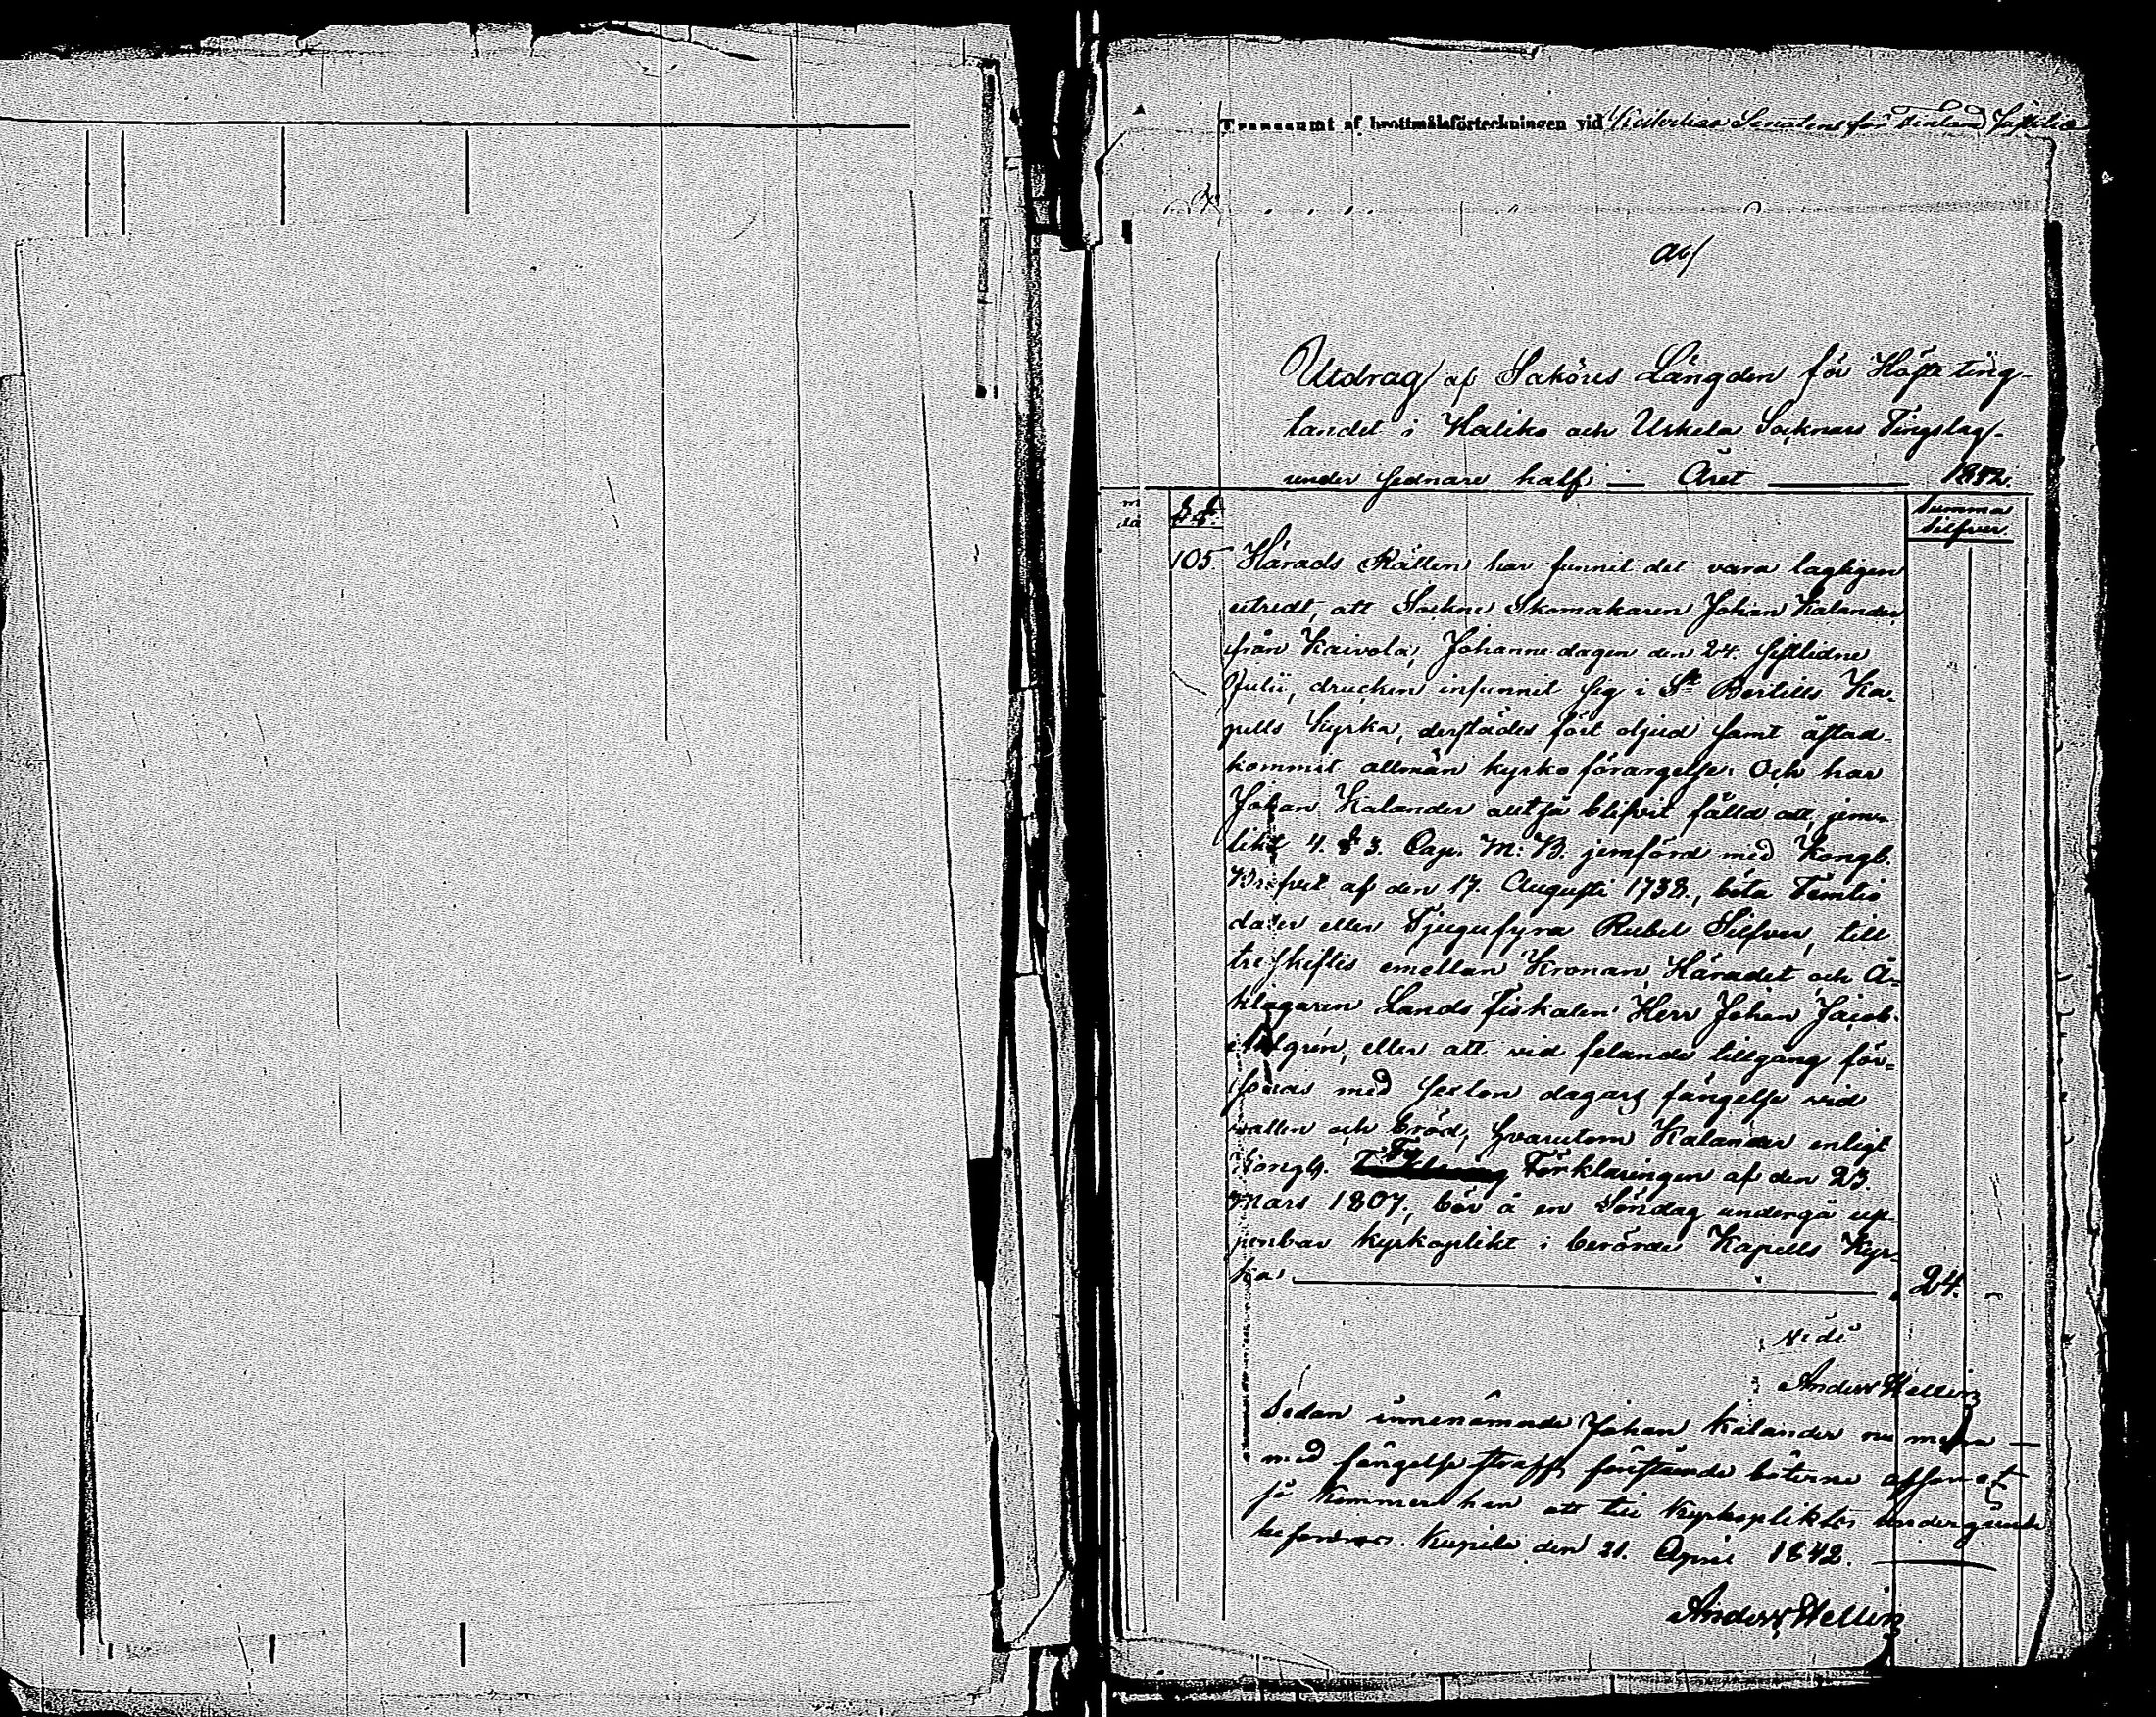 Transsumt af brottmålsförteckningen vid Kejserliga Senatens för Finland Justitie
Utdrag af Saköres Längden för Höste ting-
landet i Haliko och Uskela Socknars Tingslag
under sednare half Året 1842.
§§. Summa
Silfver
105 Härads Rätten har funnit det vara lagligen
utredt, att Sockne Skomakaren Johan Kalander
från Kaivola, Johannedagen den 24. sistlidne
Julii, drucken infunnit sig i St Bertills Ka-
pells Kyrka, derstädes fört oljud samt åstad-
kommit allmän kyrko förargelse. Och har
Johan Kalander alltså blifvit fälld att, jem-
likt 4. § 3. Cap. M: B. jemförd med Kongl.
Brefvet af den 17. Augusti 1738., böta Femtio
daler eller Tjugufyra Rubel Silfver, till
treskiftes emellan Kronan, Häradet och Å-
klagaren Lands Fiskalen Herr Johan Jacob
eller att vid felande tillgång för-
sonas med sexton dagars fängelse vid
vatten och bröd, hvarutom Kalander enligt
Kongl. Förklaringen af den 23.
Mars 1807., bör å en Söndag undergå up-
penbar kyrkoplikt i berörde Kapells Kyr-
ka. 24. -
vidi
Anders Wellin
Sedan innenämnde Johan Kalander nu mera
med fängelse straff förestående böterne afsonat
så kommer han att till Kyrkopliktens undergående
befordras. Kupila den 21. April 1842.
Anders Wellin